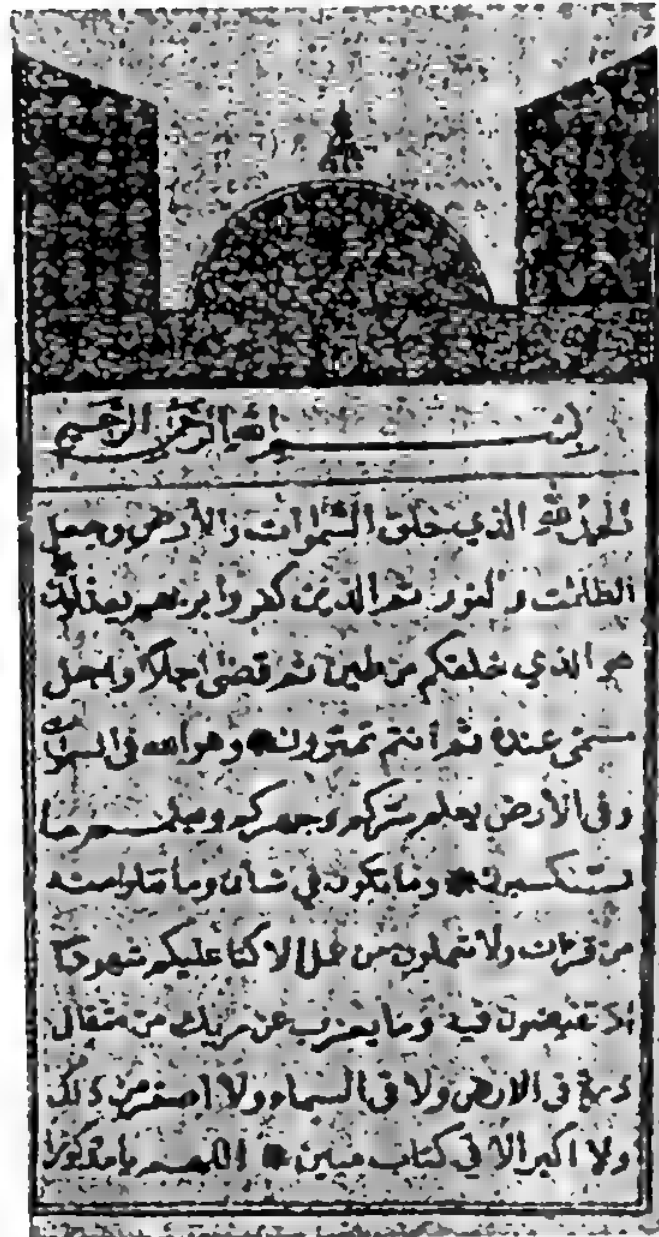 بسم الله الرحمن الرحيم
الحمد لله الذي خلق السموات والأرض وجعل
الظلمت والنور ثم الذين كفروا بربهم يعدلون
هو الذي خلقكم من طين ثم قضى اجلا واجل
مسمى عنده ثم انتم تمترون وهو الله في السموات
وفى الارض يعلم سركم وجهركم ويعلم ما
تكسبون وما تكون في شأن وما تتلوا منه
من قرآن ولا تعملون من عمل الا كنا عليكم شهودا
اذ تفيضون فيه وما يعزب عن ربك من مثقال
ذرة فى الارض ولا فى السماء ولا اصغر من ذلك
ولا اكبر الا في كتاب مبين اللهم يا